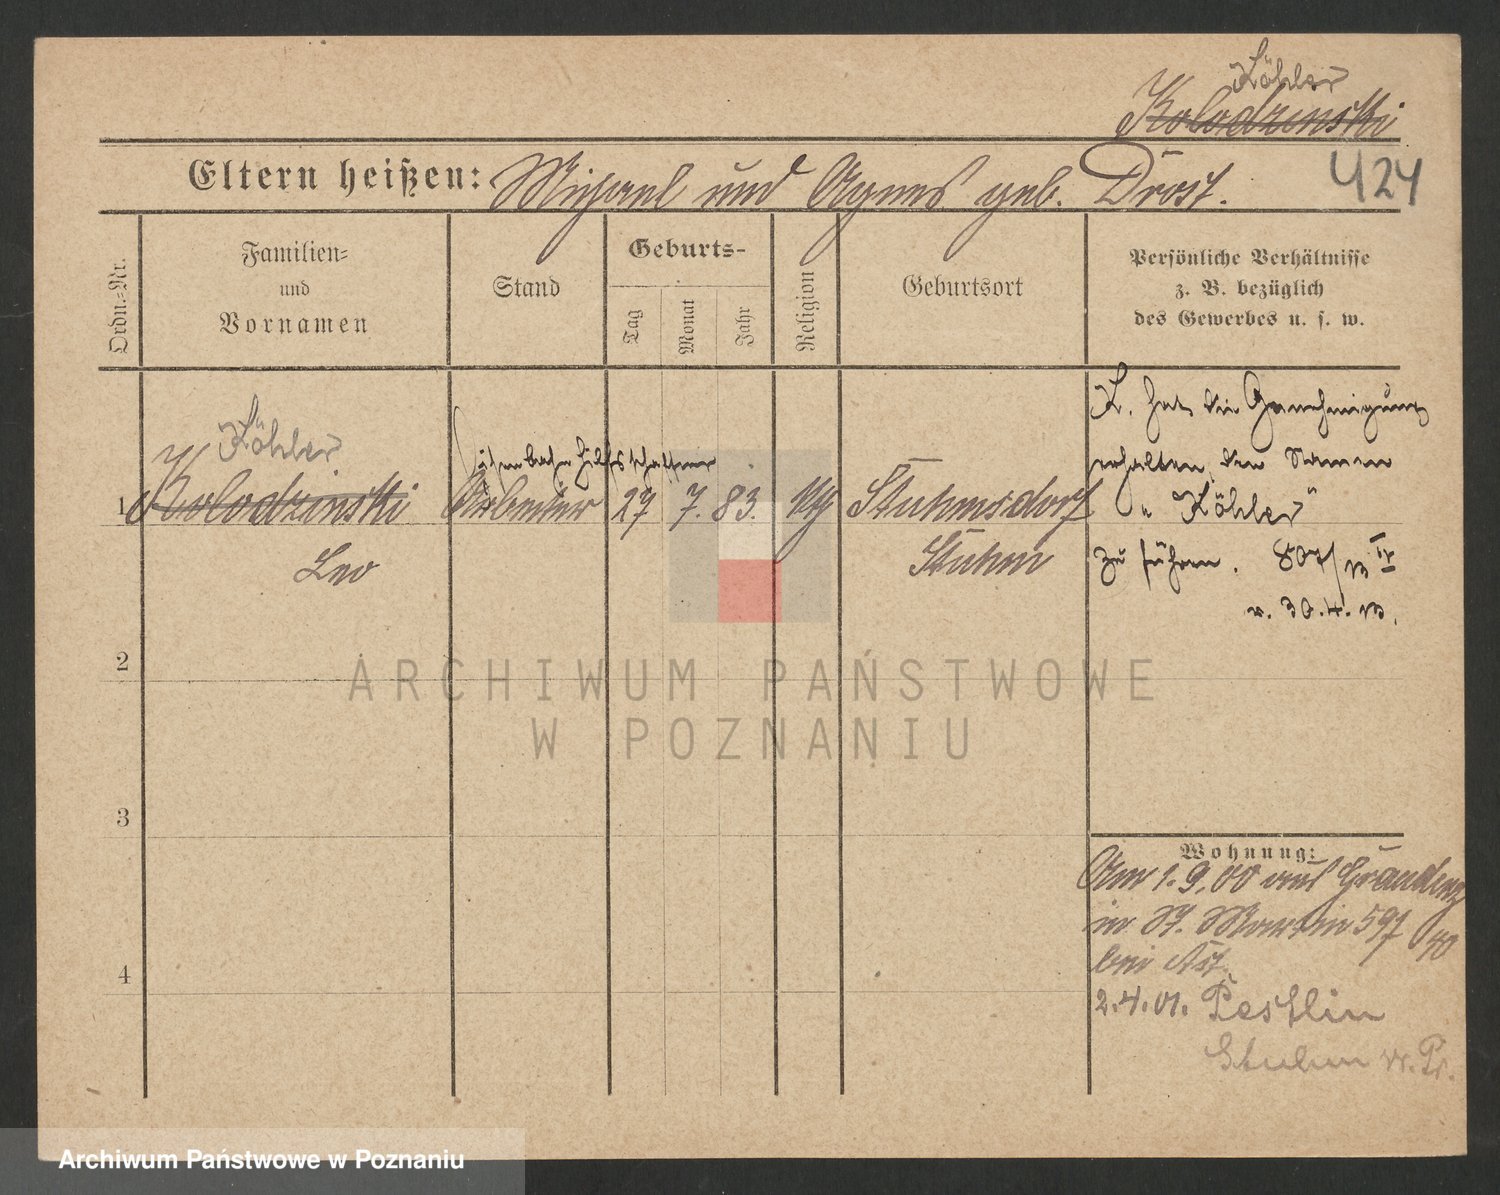 Köhler
Kolodzinski
Eltern heißen: Michael und Agnes geb. Drost.
424
Ordn.=Nr.
Familien=
und
Vornamen
Stand
Geburts-
Tag
Monat
Jahr
Religion
Geburtsort
Persönliche Verhältnisse
z. B. bezüglich
des Gewerbes u. s. w.
K. hat die Genehmigung
erhalten den Namen
"Köhler"
zu führen. 807/13 IV
v. 30.4.13.
Köhler
Hilfsschaffner
1 Kolodzinski Arbeiter 27 7. 83. kth Stuhmsdorf
Leo Stuhm
2
3
4
Wohnung:
Am 1.9.00 aus Graudenz
in St. Martin 597
bei
2.4.01. Pestlin
Stuhm W. Pr.
ARCHIWUM PAŃSTWOWE
W POZNANIU
Archiwum Państwowe w Poznaniu